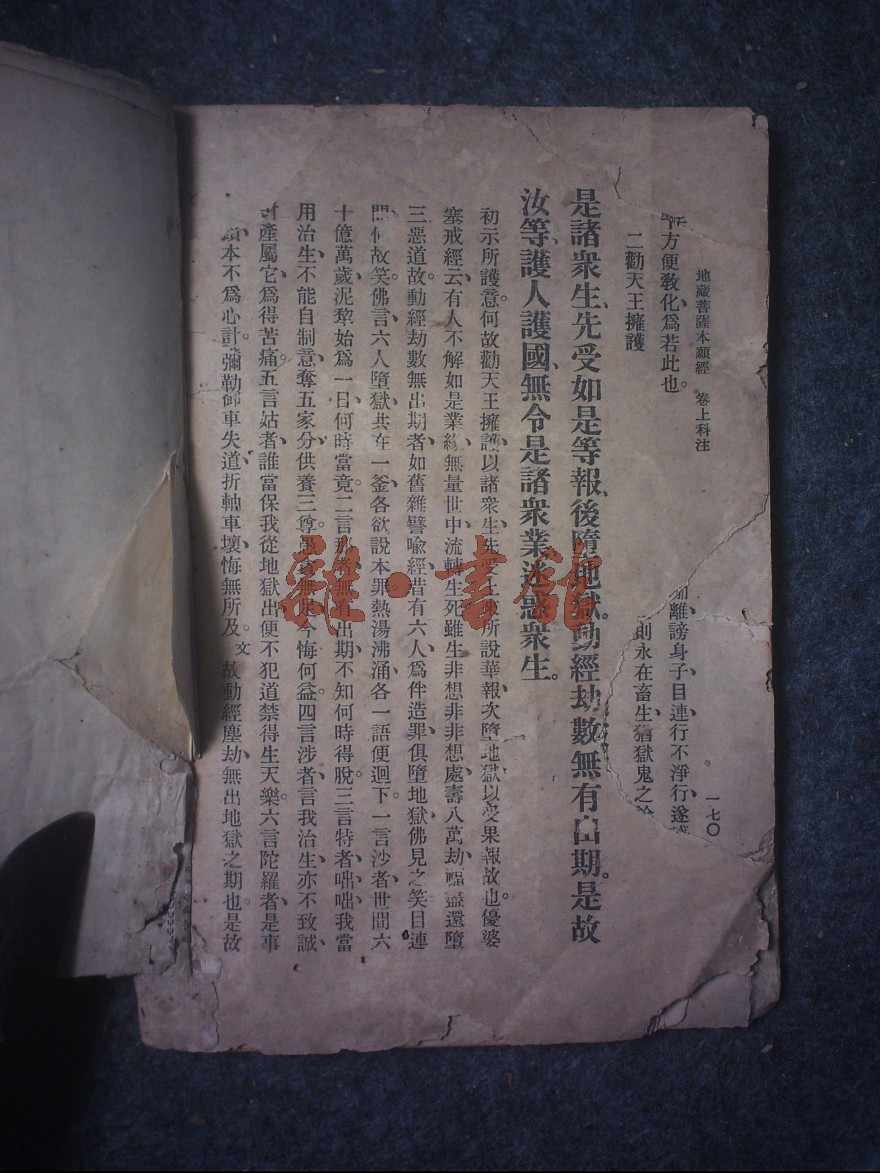 地藏菩薩本願經　卷上科注　一七〇
離謗身子目連行不淨行、遂
方便敎化、爲若此也。
則永在畜生、猶獄鬼之
二勸天王擁護
是諸衆生、先受如是等報、後墮地獄、動經劫數、無有出期。是故
汝等、護人護國、無令是諸衆業、迷惑衆生。
初示所護意。何故勸天王擁護、以諸衆生、先受上來所說華報、次墮地獄、以受果報故也。優婆
塞戒經云、有人不解如是業緣、無量世中、流轉生死、雖生非想非非想處、壽八萬劫、福盡還墮
三惡道故。動經劫數、無出期者、如舊雜譬喩經、昔有六人爲伴造罪、俱墮地獄、佛見之笑、目連
問何故笑。佛言、六人墮獄、共在一釜、各欲說本罪、熱湯沸涌、各一語便迴下。一言沙者、世間六
十億萬歲、泥犂始爲一日、何時當竟。二言那者、無有出期、不知何時得脫。三言特者、咄咄我當
用治生、不能自制意、奪五家分、供養三尊、愚貪無足、今悔何益。四言涉者、言我治生、亦不致誠、
財產屬它、爲得苦痛。五言姑者、誰當保我、從地獄出、便不犯道禁、得生天樂。六言陀羅者、是事
頭本不爲心計。彌勒御車失道、折軸車壞、悔無所及。文　故動經塵劫、無出地獄之期也。是故
雜·書館